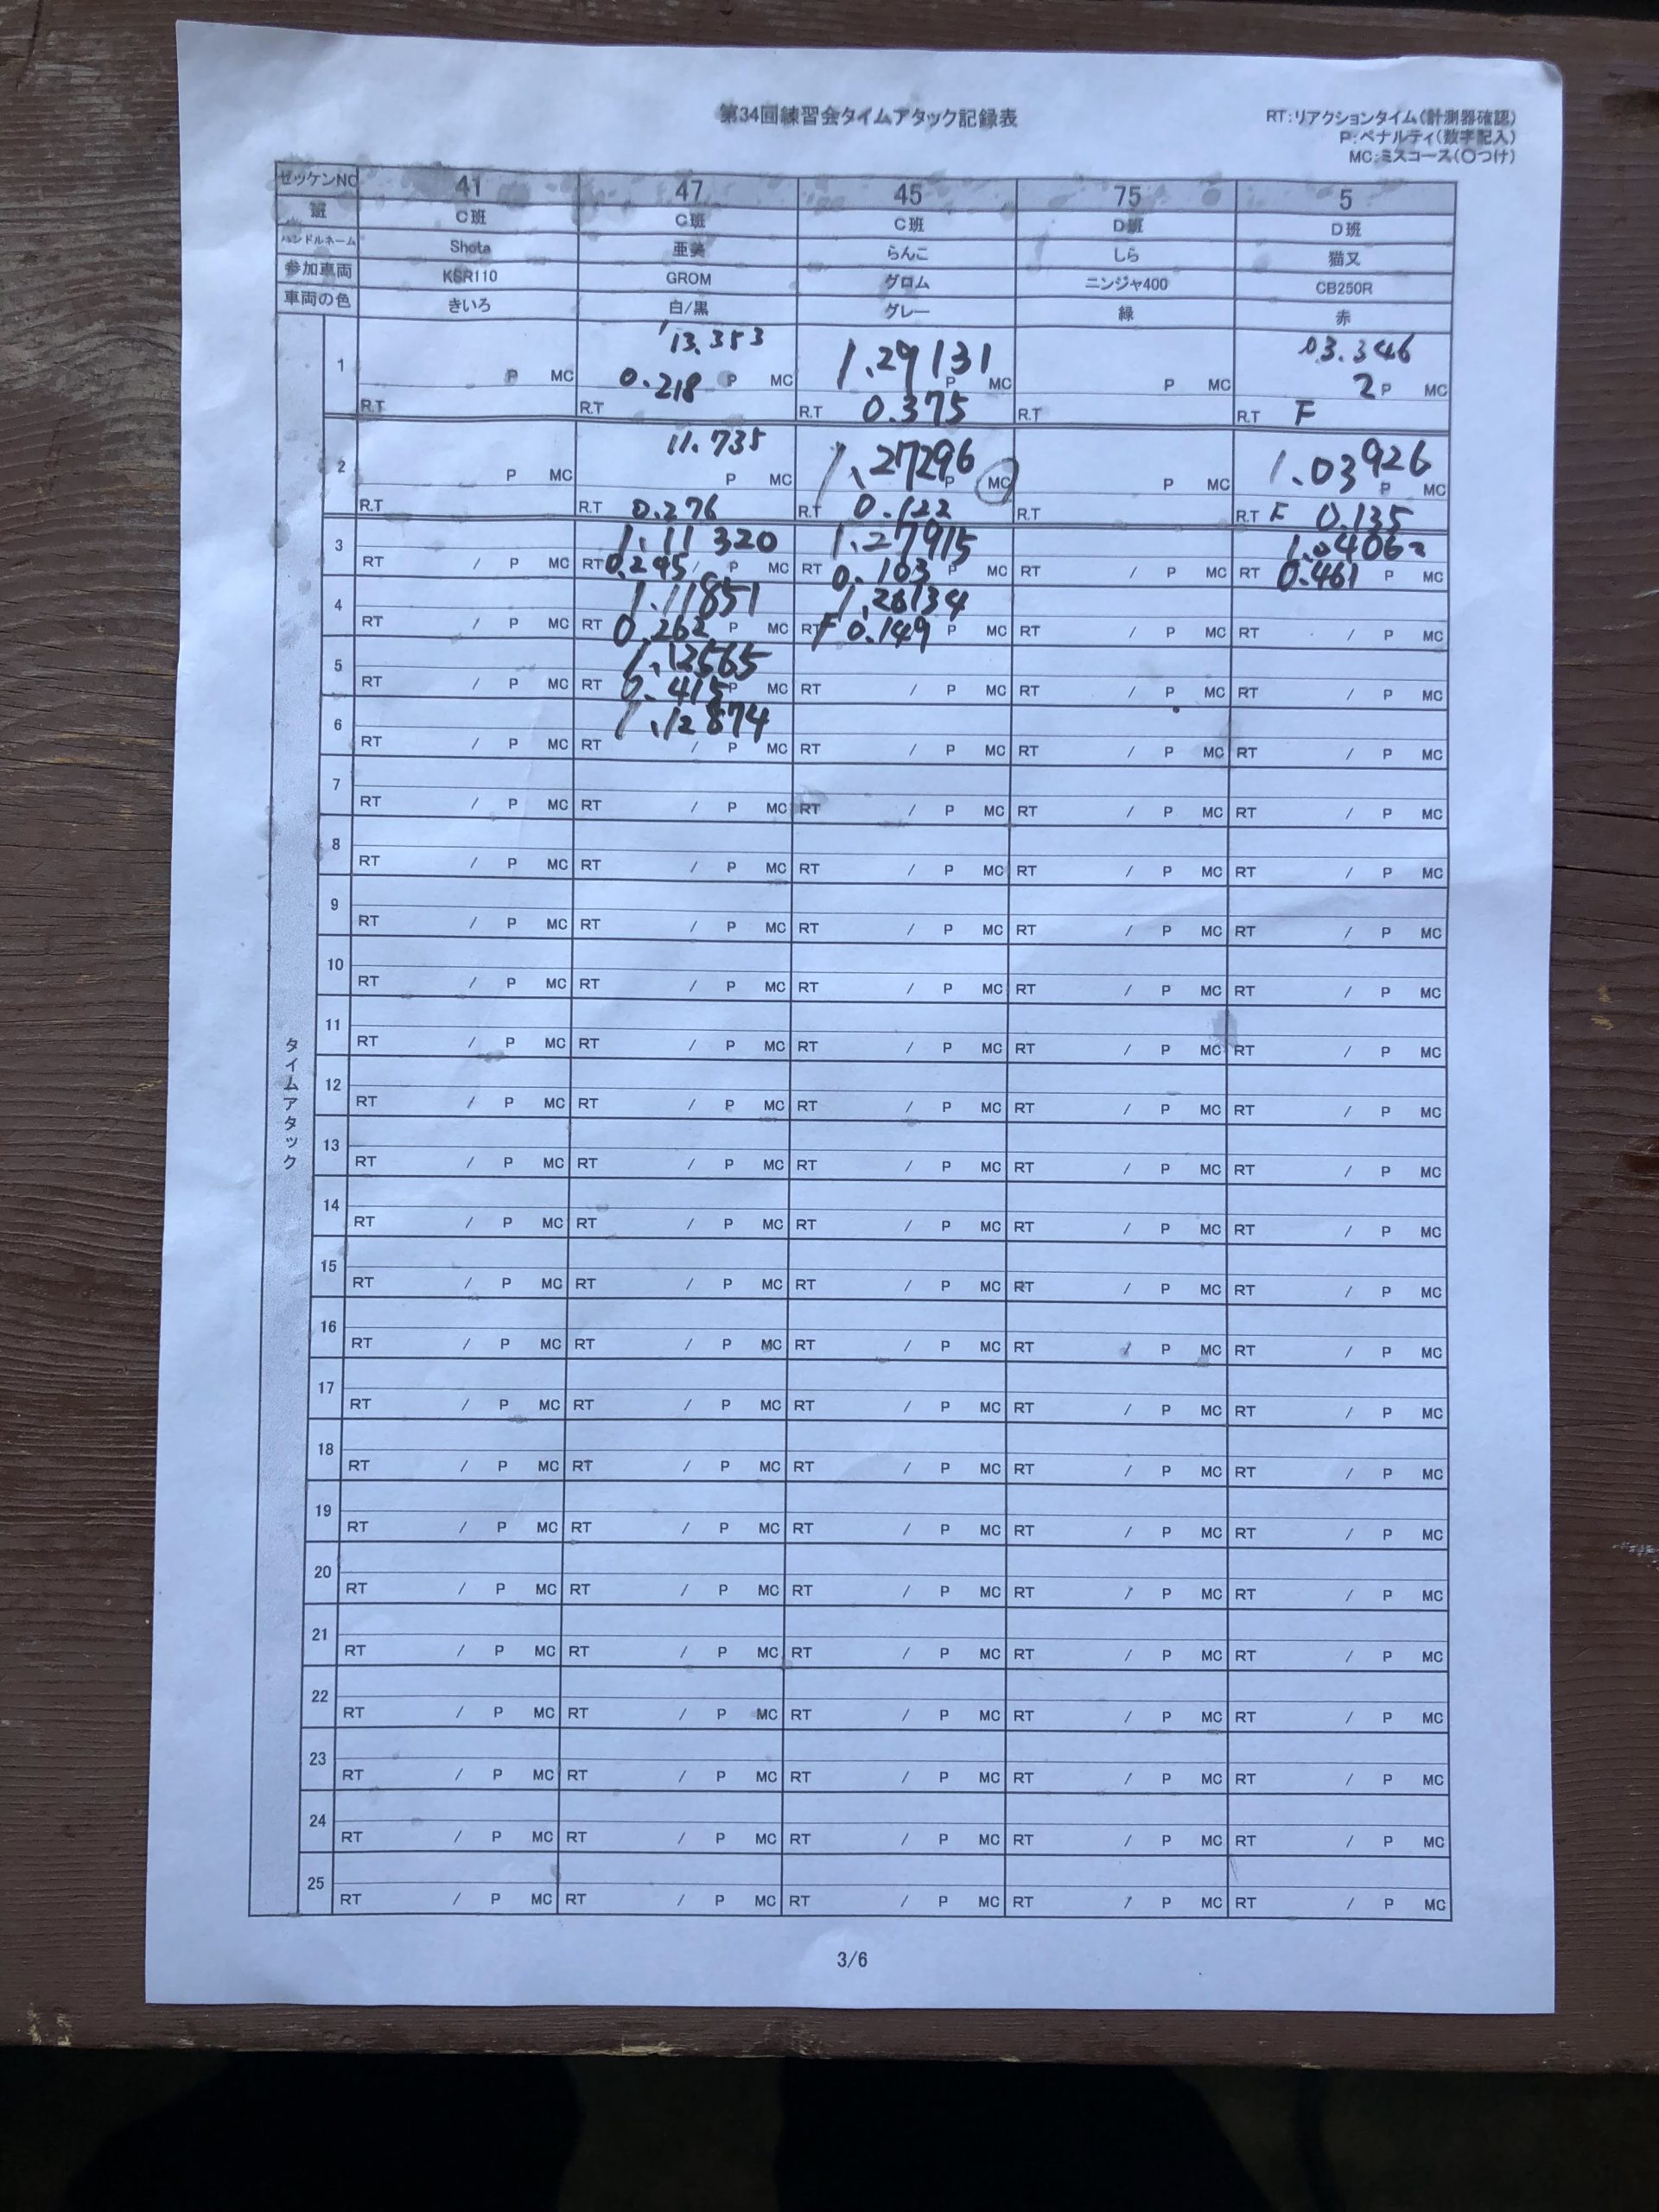 第34回練習会タイムアタック記録表
RT:リアクションタイム(計測器確認)
P:ペナルティ(数字記入)
MC:ミスコース(〇つけ)
ゼッケンNO 41 47 45 75 5
班 C班 C班 C班 D班 D班
ハンドルネーム Shota 亜美 らんこ しら 猫又
参加車両 KSR110 GROM グロム ニンジャ400 CB250R
車両の色 きいろ 白/黒 グレー 緑 赤
タイムアタック
1 '13.353 1.29131 03.346
P MC 0.218 P MC P MC P MC 2 P MC
R.T R.T R.T 0.375 R.T R.T F
2 11.735 1.27296 1.03926
P MC P MC P MC P MC P MC
R.T R.T 0.276 R.T 0.122 R.T R.T F 0.135
3 1.11320 1.27915 1.04062
RT / P MC RT 0.295 / P MC RT 0.103 P MC RT / P MC RT 0.461 P MC
4 1.11851 1.28134
RT / P MC RT 0.262 P MC RT F 0.149 P MC RT / P MC RT / P MC
5 1.12565
RT / P MC RT 0.415 P MC RT / P MC RT / P MC RT / P MC
6 1.12874
RT / P MC RT / P MC RT / P MC RT / P MC RT / P MC
7
RT / P MC RT / P MC RT / P MC RT / P MC RT / P MC
8
RT / P MC RT / P MC RT / P MC RT / P MC RT / P MC
9
RT / P MC RT / P MC RT / P MC RT / P MC RT / P MC
10
RT / P MC RT / P MC RT / P MC RT / P MC RT / P MC
11
RT / P MC RT / P MC RT / P MC RT / P MC RT / P MC
12
RT / P MC RT / P MC RT / P MC RT / P MC RT / P MC
13
RT / P MC RT / P MC RT / P MC RT / P MC RT / P MC
14
RT / P MC RT / P MC RT / P MC RT / P MC RT / P MC
15
RT / P MC RT / P MC RT / P MC RT / P MC RT / P MC
16
RT / P MC RT / P MC RT / P MC RT / P MC RT / P MC
17
RT / P MC RT / P MC RT / P MC RT / P MC RT / P MC
18
RT / P MC RT / P MC RT / P MC RT / P MC RT / P MC
19
RT / P MC RT / P MC RT / P MC RT / P MC RT / P MC
20
RT / P MC RT / P MC RT / P MC RT / P MC RT / P MC
21
RT / P MC RT / P MC RT / P MC RT / P MC RT / P MC
22
RT / P MC RT / P MC RT / P MC RT / P MC RT / P MC
23
RT / P MC RT / P MC RT / P MC RT / P MC RT / P MC
24
RT / P MC RT / P MC RT / P MC RT / P MC RT / P MC
25
RT / P MC RT / P MC RT / P MC RT / P MC RT / P MC
3/6